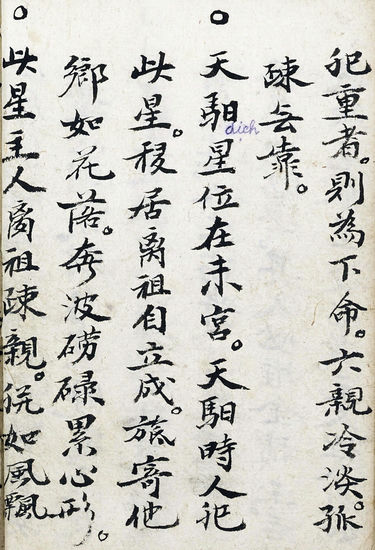 犯重者。則為下命。六親冷淡。孤
疎无靠。
○天馹星位在未宮。天馹時人犯
dịch
此星。移居离祖自立成。旅寄他
鄉如花落。奔波磱碌累心形。
○此星主人离祖疎親。如風飄